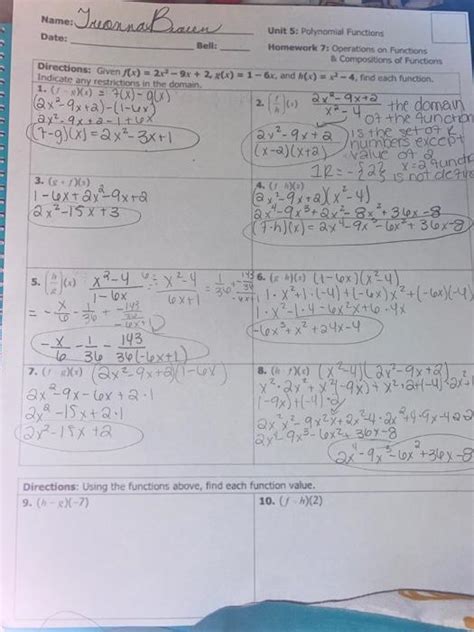 Name: Treonna Brown
Unit 5: Polynomial Functions
Date:
Bell:
Homework 7: Operations on Functions
& Compositions of Functions
Directions: Given f(x) = 2x² − 9x + 2, g(x) = 1 − 6x, and h(x) = x² − 4, find each function.
Indicate any restrictions in the domain.
1. (f - g)(x) = f(x) - g(x)
(2x²-9x+2)-(1-6x)
2x²-9x+2-1+6x
(f-g)(x) = 2x²-3x+1
2. (f/h)(x) 2x²-9x+2 / x²-4
2x²-9x+2 / (x-2)(x+2)
the domain
of the function
is the set of R
numbers except
value of 2
3. (g + f)(x)
1-6x+2x²-9x+2
2x²-15x+3
4. (f · h)(x)
(2x²-9x+2)(x²-4)
2x⁴-9x³+2x²-8x²+36x-8
(f·h)(x) = 2x⁴-9x³-6x²+36x-8
5. (h/g)(x) x²-4 / 1-6x
= -x/6 - 1/36 + -143/36 / -6x+1
-x/6 - 1/36 - 143/36(-6x+1)
6. (g · h)(x) (1-6x)(x²-4)
1·x²+1·(-4)+(-6x)x²+(-6x)(-4)
1·x²-1·4-6x²x+6·4x
-6x³+x²+24x-4
7. (f · g)(x) (2x²-9x+2)(1-6x)
2x²-9x-6x+2·1
2x²-15x+2·1
2x²-15x+2
8. (h · f)(x) (x²-4)(2x²-9x+2)
2x⁴-9x³-6x²+36x-8
2x⁴-9x³-6x²+36x-8
Directions: Using the functions above, find each function value.
9. (h - g)(-7)
10. (f · h)(2)